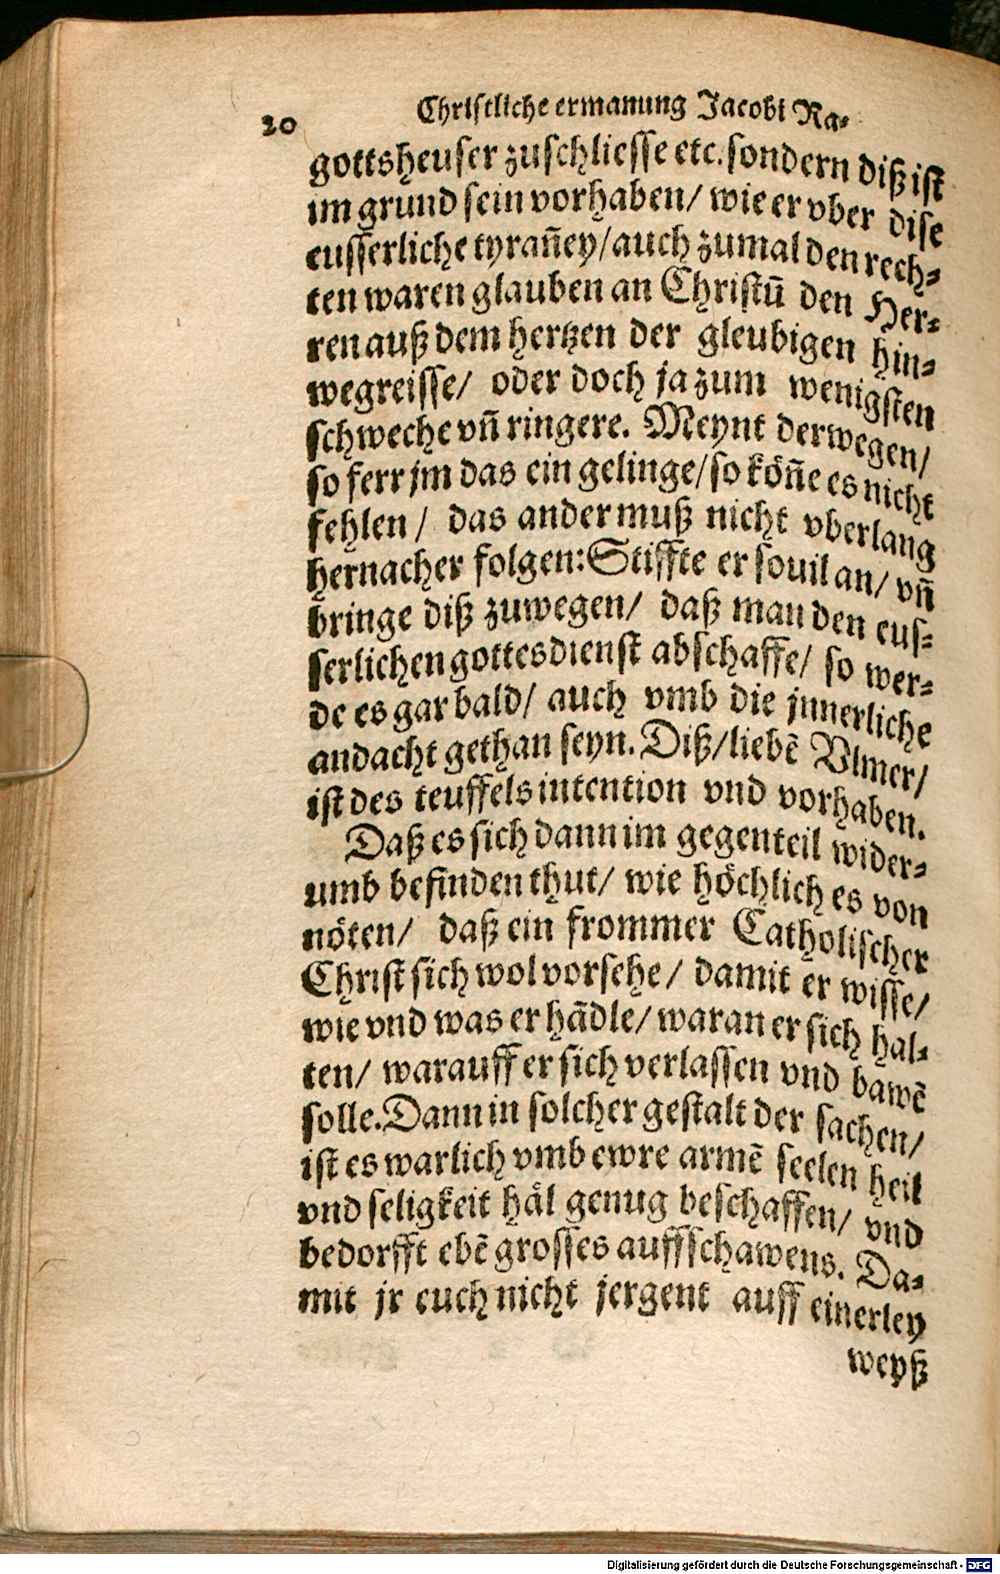 20 Christliche ermanung Jacobi Ra-
gottsheuser zuschliesse etc. sondern diß ist
im grund sein vorhaben/ wie er vber dise
eusserliche tyran̄ey/ auch zumal den rech-
ten waren glauben an Christū den Her-
ren auß dem hertzen der gleubigen hin-
wegreisse/ oder doch ja zum wenigsten
schweche vn̄ ringere. Meynt derwegen/
so ferr jm das ein gelinge/ so kön̄e es nicht
fehlen/ das ander muß nicht vberlang
hernacher folgen: Stiffte er souil an/ vn̄
bringe diß zuwegen/ daß man den eus-
serlichen gottesdienst abschaffe/ so wer-
de es gar bald/ auch vmb die jnnerliche
andacht gethan seyn. Diß/ liebē Vlmer/
ist des teuffels intention vnd vorhaben.
Daß es sich dann im gegenteil wider-
umb befinden thut/ wie höchlich es von
nöten/ daß ein frommer Catholischer
Christ sich wol vorsehe/ damit er wisse/
wie vnd was er hādle/ waran er sich hal-
ten/ warauff er sich verlassen vnd bawē
solle. Dann in solcher gestalt der sachen/
ist es warlich vmb ewre armē seelen heil
vnd seligkeit häl genug beschaffen/ vnd
bedorfft ebē grosses auffschawens. Da-
mit jr euch nicht jergent auff einerley
weyß
Digitalisierung gefördert durch die Deutsche Forschungsgemeinschaft - DFG